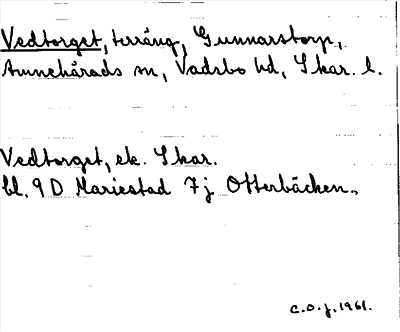 Vedtorget, terräng, Gunnarstorp,
Amnehärads sn, Vadsbo hd, Skar. l.
Vedtorget, ek. Skar.
bl. 9 D Mariestad 7j Otterbäcken.
C.O.J. 1961.